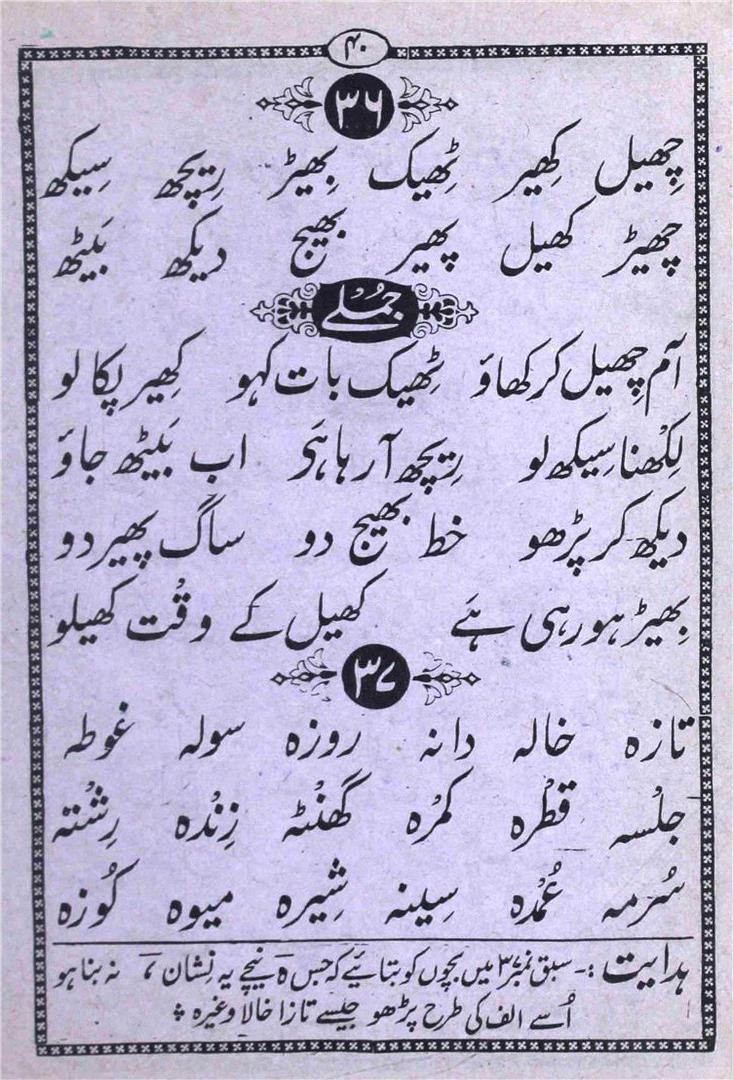 ۴۰
۳۶
چِھیل کِھیر ٹِھیک بِھیڑ رِیچھ سِیکھ
چھیڑ کھیل پھیر بھیج دیکھ بَیٹھ
جُملے
آم چِھیل کر کھاؤ ٹِھیک بات کہو کِھیر پکا لو
لِکْھنا سِیکھ لو رِیچھ آ رہا ہَی اب بَیٹھ جاؤ
دیکھ کر پڑھو خط بھیج دو ساگ پھیر دو
بِھیڑ ہو رہی ہَے کھیل کے وقْت کھیلو
۳۷
تازہ خالہ دانہ روزہ سولہ غوطہ
جلْسہ قطْرہ کمْرہ گھنْٹہ زِنْدہ رِشْتہ
سُرمہ عُمْدہ سِینہ شِیرہ میوہ کُوزہ
ہدایت :- سبق نمبر ۳۷ میں بچوں کو بتائیے کہ جس ہ نیچے یہ نِشان ، نہ بنا ہو
اُسے الف کی طرح پڑھو جیسے تازا خالا وغیرہ